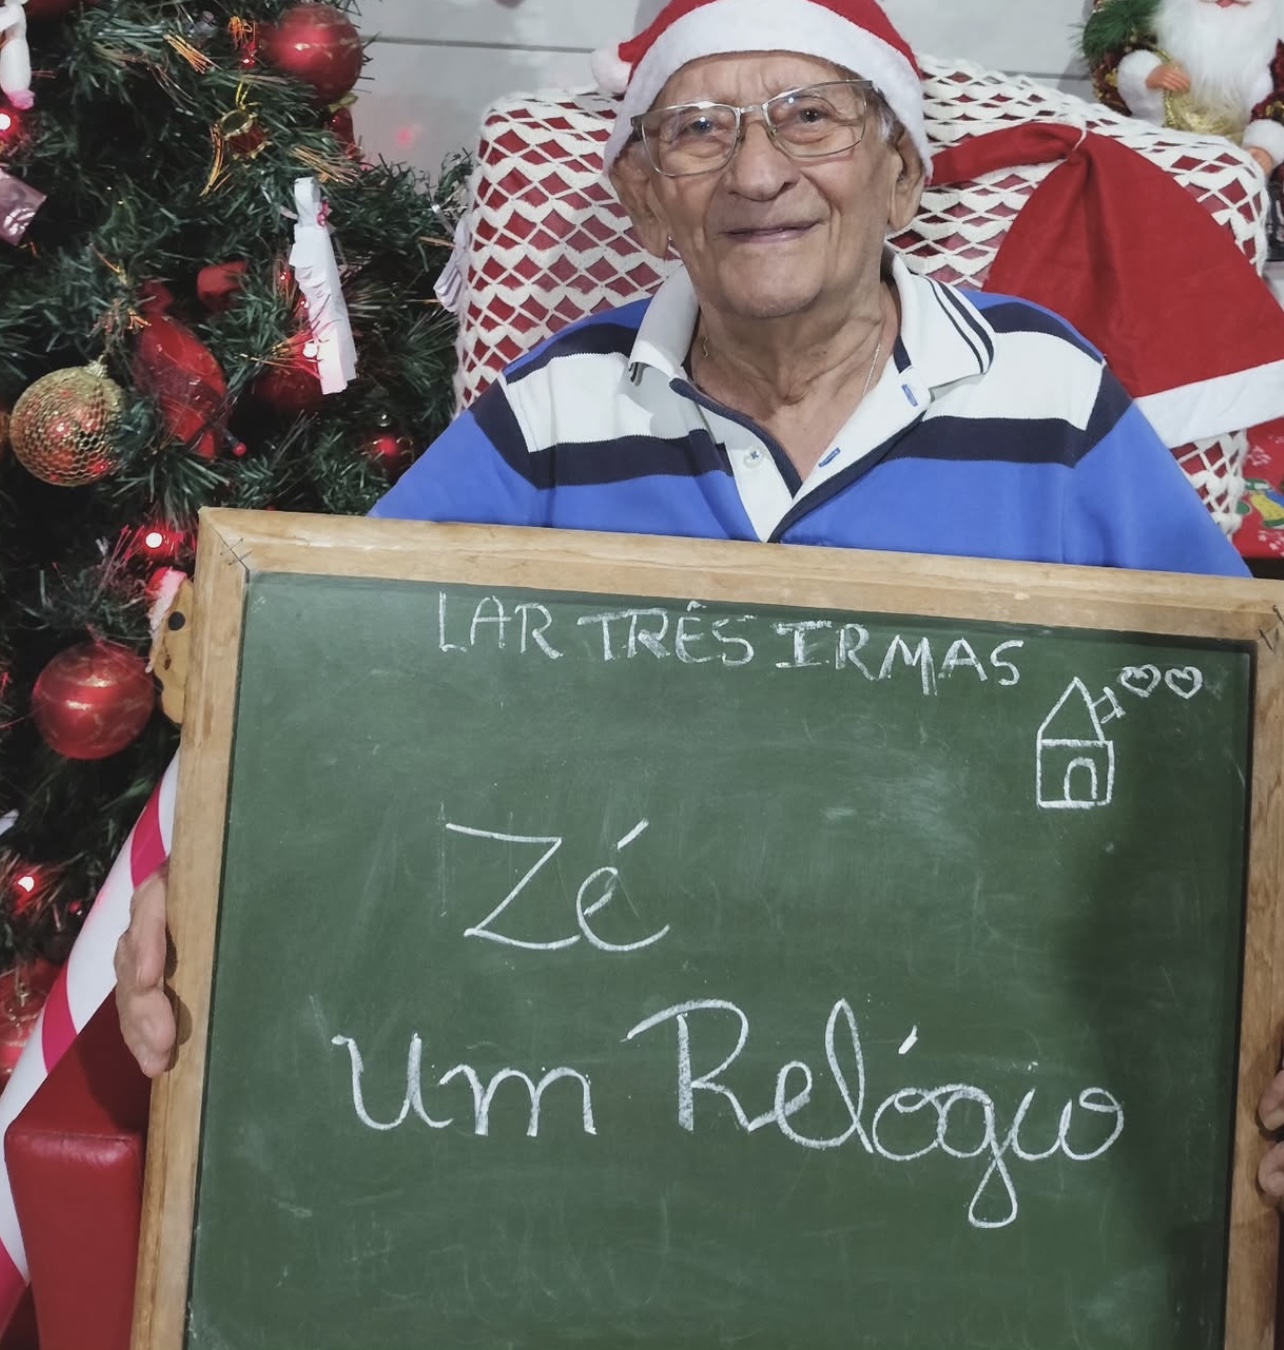 LAR TRÊS IRMAS
Zé
um Relógio